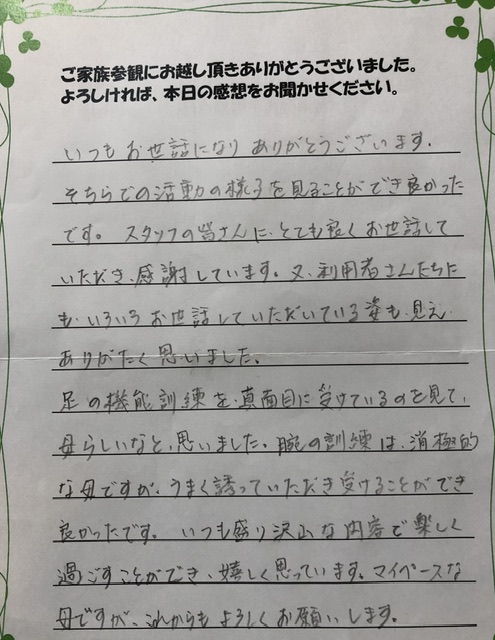 ご家族参観にお越し頂きありがとうございました。
よろしければ、本日の感想をお聞かせください。
いつもお世話になりありがとうございます.
そちらでの活動の様子を見ることができ良かった
です。スタッフの皆さんに、とても良くお世話して
いただき、感謝しています。又、利用者さんたちに
も、いろいろお世話していただいている姿も、見え、
ありがたく思いました。
足の機能訓練を、真面目に受けているのを見て、
母らしいなと、思いました。腕の訓練は、消極的
な母ですが、うまく誘っていただき受けることができ
良かったです。いつも盛り沢山な内容で楽しく
過ごすことができ、嬉しく思っています。マイペースな
母ですが、これからもよろしくお願いします。